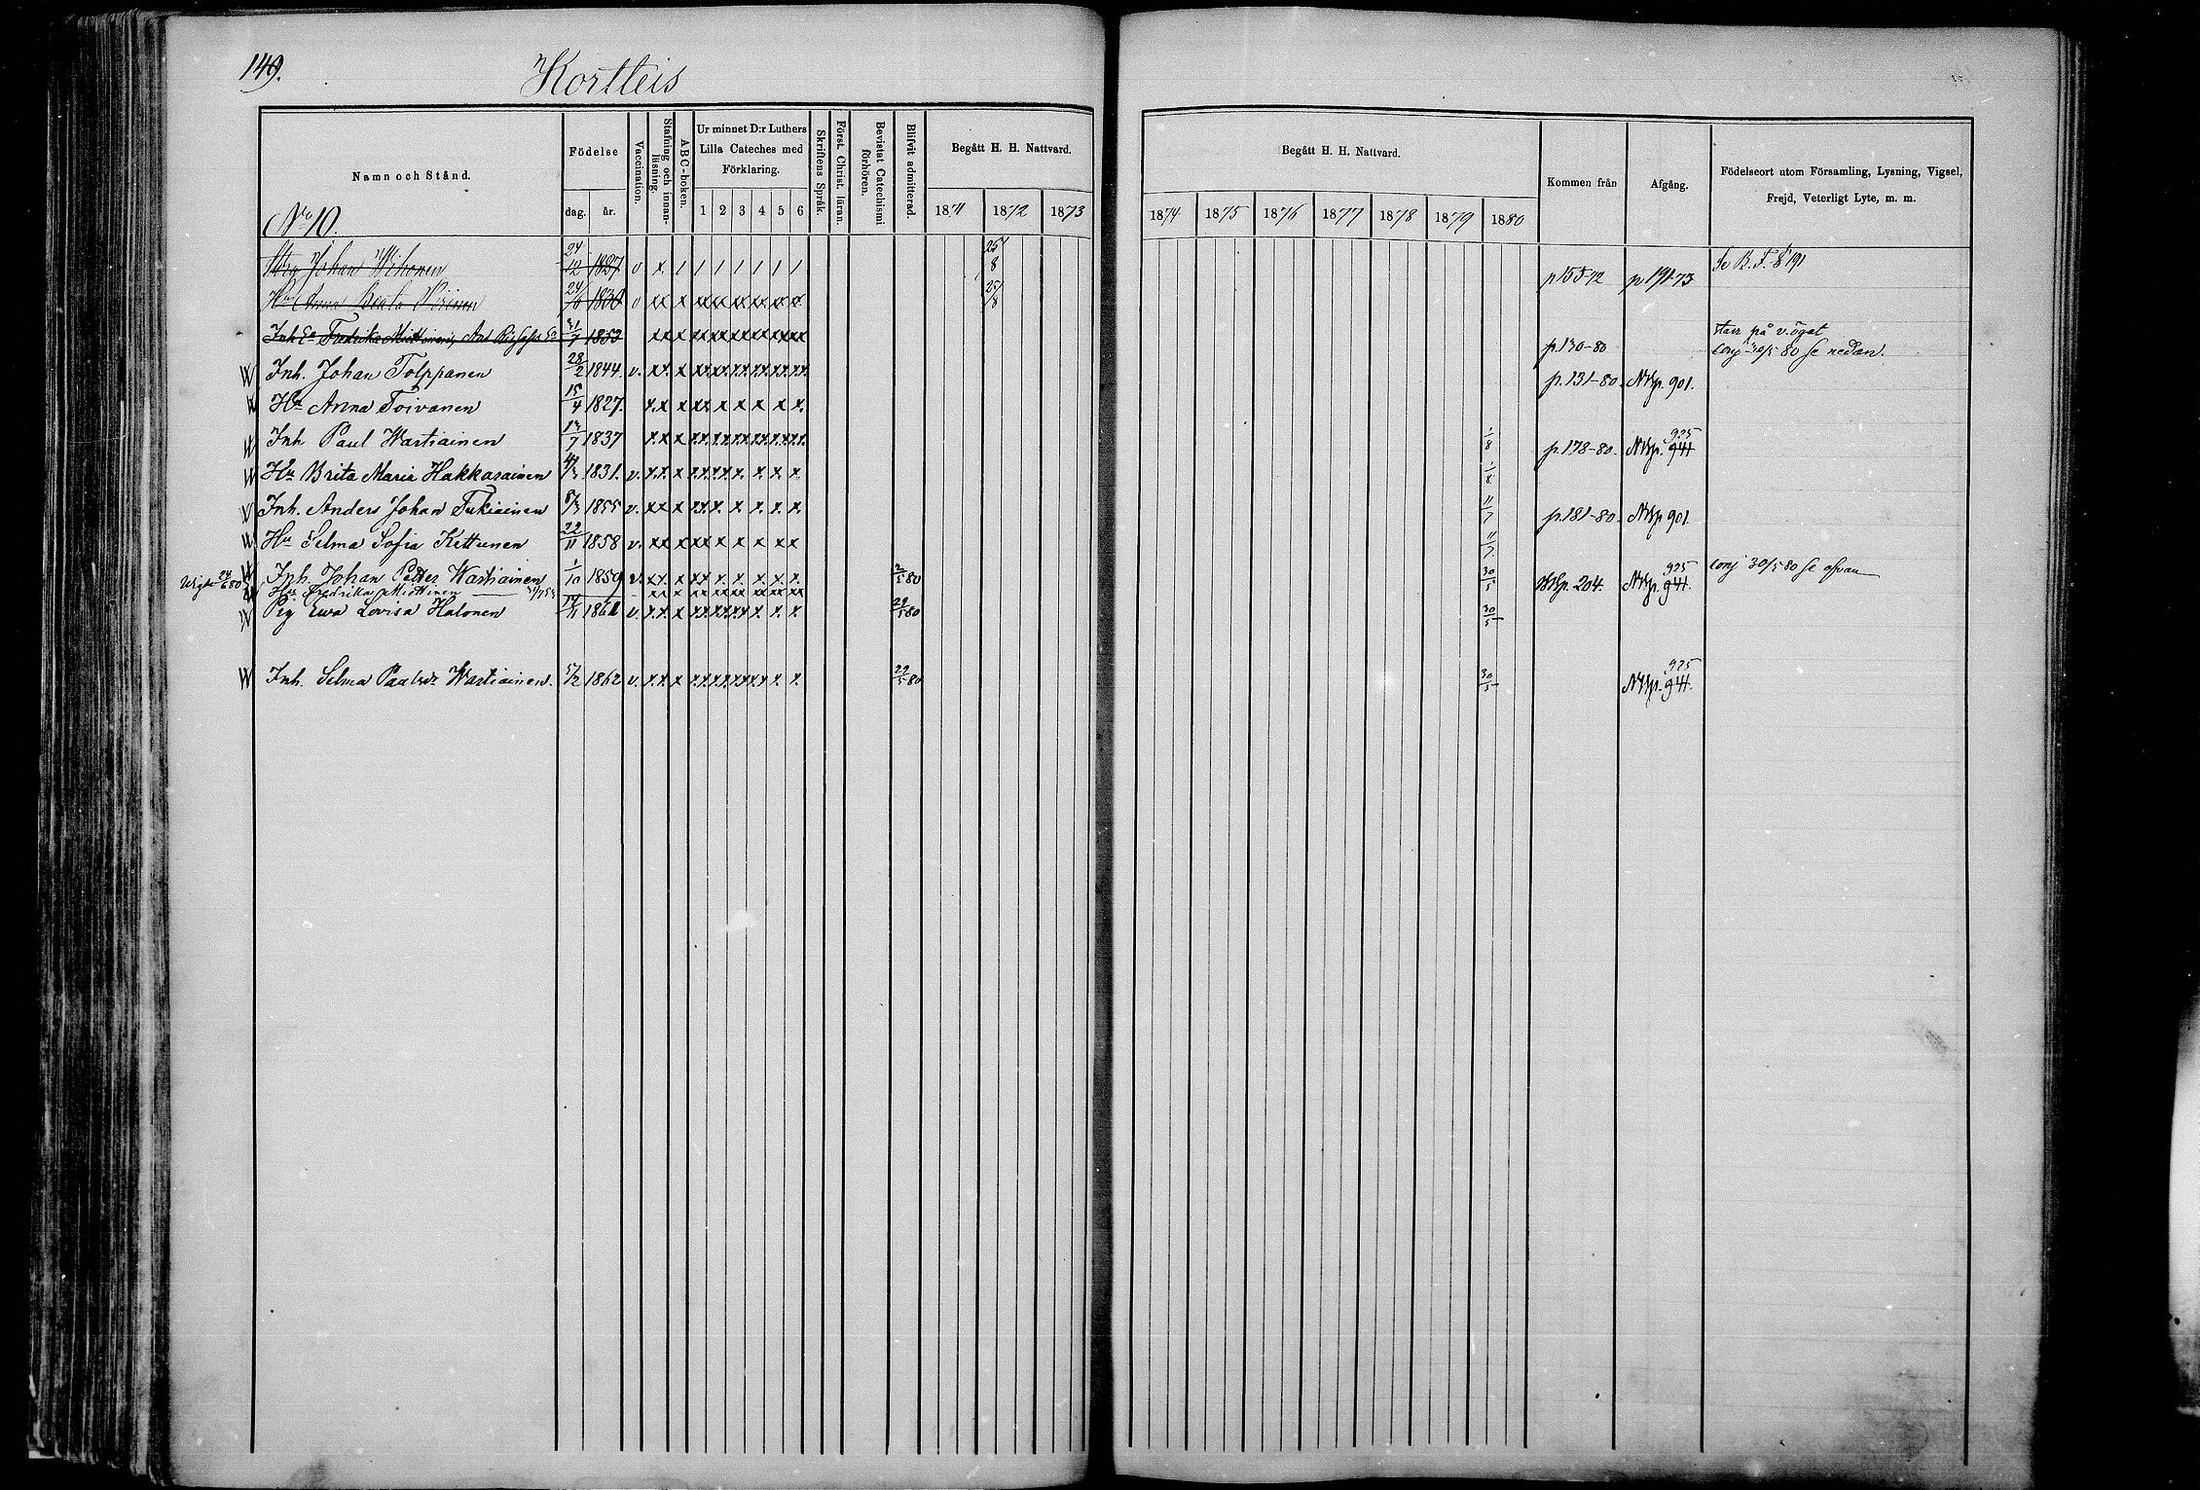 149.
Kortteis
Namn och Stånd.
Födelse
dag.
år.
Vaccination.
Stafning och innan-läsning.
ABC-boken.
Ur minnet D:r Luthers
Lilla Cateches med
Förklaring.
1 2 3 4 5 6
Skriftens Språk.
Först. Christ. läran.
Bevistat Catechismi förhören.
Blifvit admitterad.
Begått H. H. Nattvard.
1871 1872 1873
Begått H. H. Nattvard.
1874 1875 1876 1877 1878 1879 1880
Kommen från
Afgång.
Födelseort utom Församling, Lysning, Vigsel,
Frejd, Veterligt Lyte, m. m.
No 10.
Johan Wihonen 24/12 1827 v x / / / / / / / 25/8 p155-72 p191-73 Se K. F. 8 191
Hu Anna Beata 1830 v xx x xx xx xx xx 25/8
Inh Ea Fredrika Miettinen, 31/7 1853 xx x xx xx xx xx xx xx p.130-80 starr på v. ögat
conj 30/5 80 se nedan.
Inh. Johan Tolppanen 28/2 1844. v. xx x xx xx xx xx xx xx p.131-80. NKp. 901.
Hu Anna Toivanen 15/4 1827. x.x x xx x x x x x.
Inh Paul Wartiainen 13/7 1837 x.x x x.x xx xx xx xx xx 1/8 p.178-80. NKp. 941 925
Hu Brita Maria Hakkarainen 1831. v. x.x. x x.x x.x x. x. x. x. 1/8
Inh. Anders Johan Tukiainen 8/3 1855 v. xx x x.x x. x. x. x. x. 11/7 p.181-80. NKp 901.
Hu Selma Sofia Kettunen 22/11 1858 v. xx x xx x x x x x 11/7.
Vigde 24/6 80 Inh. Johan Petter Wartiainen 1/10 1859 v. x.x. x x.x x. x. x. x. x. 2/5 80 30/5 NKp. 204. NKp. 941. 925 conj 30/5 80 se ofvan
Hu Fredrika Miettinen 31/7 53 xx x xx xx xx xx xx xx
Pig Ewa Lovisa Halonen 1861 v. x.x x x.x x.x x.x x. x. x. 29/5 80 30/5
Inh. Selma Paulsdr Wartiainen. 5/2 1862 v. x.x. x x.x x.x x.x x. x. x. 29/5 80 30/5 NKp. 941. 925